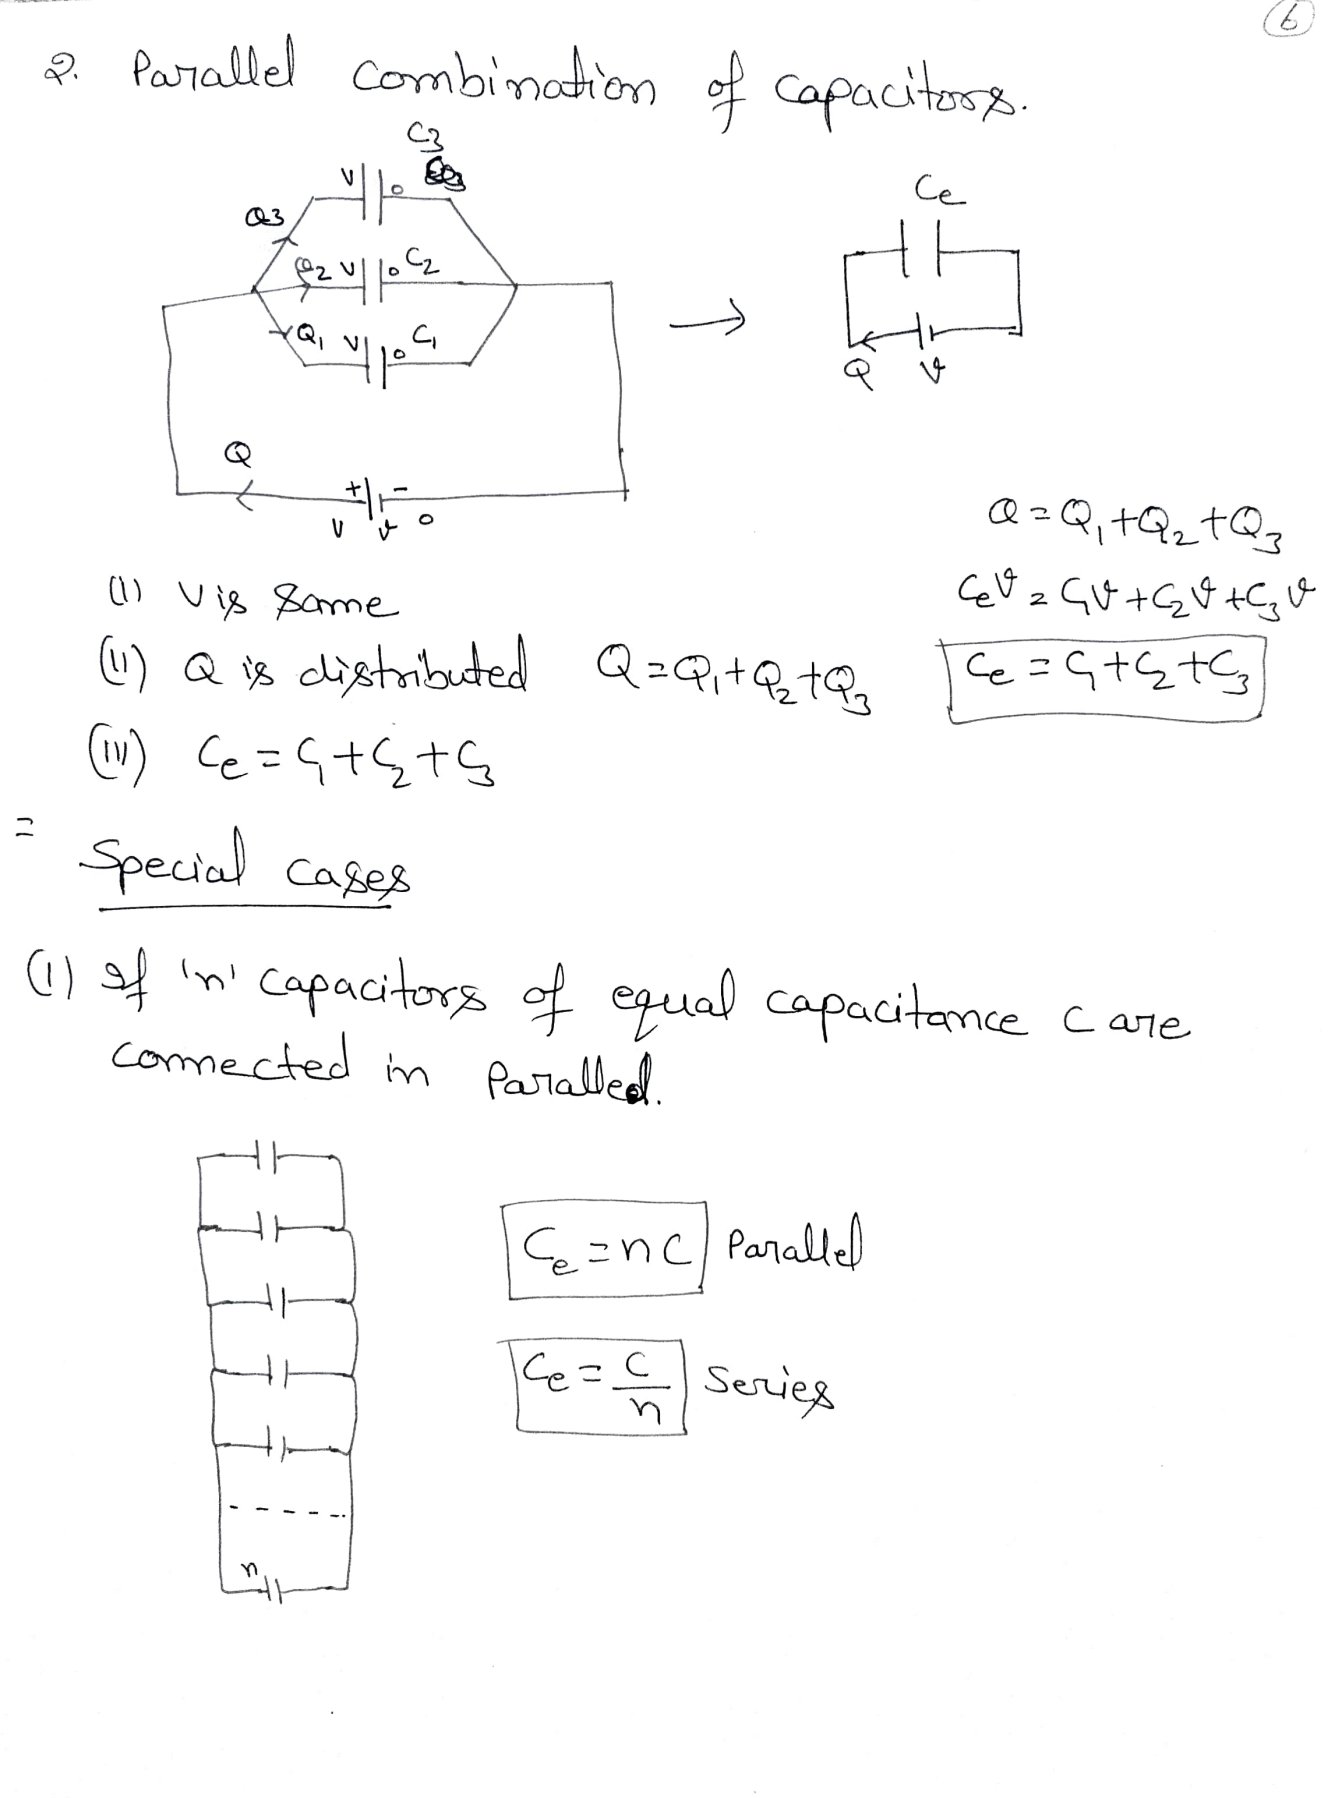 6
2. Parallel combination of capacitors.
C3
V 0
Q3
Q2 V 0 C2
Q1 V 0 C1
Q
+ -
V V 0
Ce
Q V
Q = Q1+Q2+Q3
CeV = C1V+C2V+C3V
Ce = C1+C2+C3
(I) V is same
(II) Q is distributed Q = Q1+Q2+Q3
(III) Ce = C1+C2+C3
=
Special cases
(1) If 'n' capacitors of equal capacitance C are
connected in Parallel.
Ce = nC Parallel
Ce = C/n Series
n